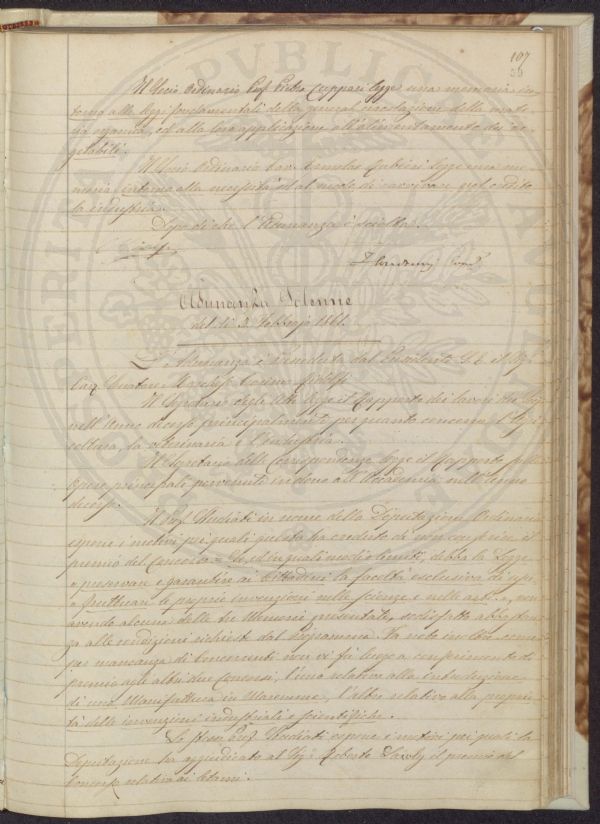 107
Il Socio Ordinario Prof. Pietro Cuppari legge una memoria in-
torno alle leggi fondamentali della generale
ed alla loro applicazione all'alimentamento dei ve-
getabili.
Il Socio Ordinario Cav. legge una me-
moria intorno alla necessità ed al modo di ravvivare nel credito
la industria.
Dopo di che l'Adunanza è sciolta.
Adunanza Solenne
del dì 3. Febbrajo 1861.
L'Adunanza è preseduta dal Presidente S. E. il Sig.
Marchese Cosimo Ridolfi
Il Segretario degli Atti legge il Rapporto dei lavori
nell'Anno decorso principalmente per quanto concerne l'Agri-
coltura, la veterinaria e l'industria.
Il Segretario delle Corrispondenze legge il Rapporto sulle
Opere principali pervenute in dono all'Accademia nell'anno
decorso.
Il Prof. Studiati in nome della Deputazione Ordinaria
espone i motivi pei quali questa ha creduto di non conferire il
premio del Concorso = Se, ed in quali modi e limiti, debba la Legge
preservare e garantire ai Cittadini la facoltà esclusiva di
fruttuare le proprie invenzioni nelle scienze e nelle arti =, non
avendo alcuna delle tre Memorie presentate, sodisfatto abbastan-
za alle condizioni richieste dal Programma. Fa noto inoltre come
per mancanza di Concorrenti non vi fu luogo a conferimento di
premio agli altri due Concorsi, l'uno relativo alla introduzione
di una Manifattura in Maremma, l'altro relativo alla proprie-
tà delle invenzioni industriali e scientifiche.
Lo stesso Prof. Studiati espone i motivi pei quali la
Deputazione ha aggiudicato al Sig. Roberto Lawley il premio del
Concorso relativo ai